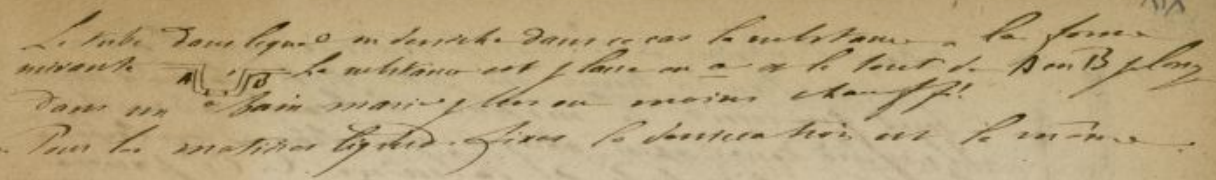 Le tube dans lequel on dessèche dans ce cas la substance a la forme
suivante A B La substance est placée en a et le tout de A en B plongé
dans un bain marie plus ou moins chauffé.
Pour les matières liquides fixes la dessication est la même.